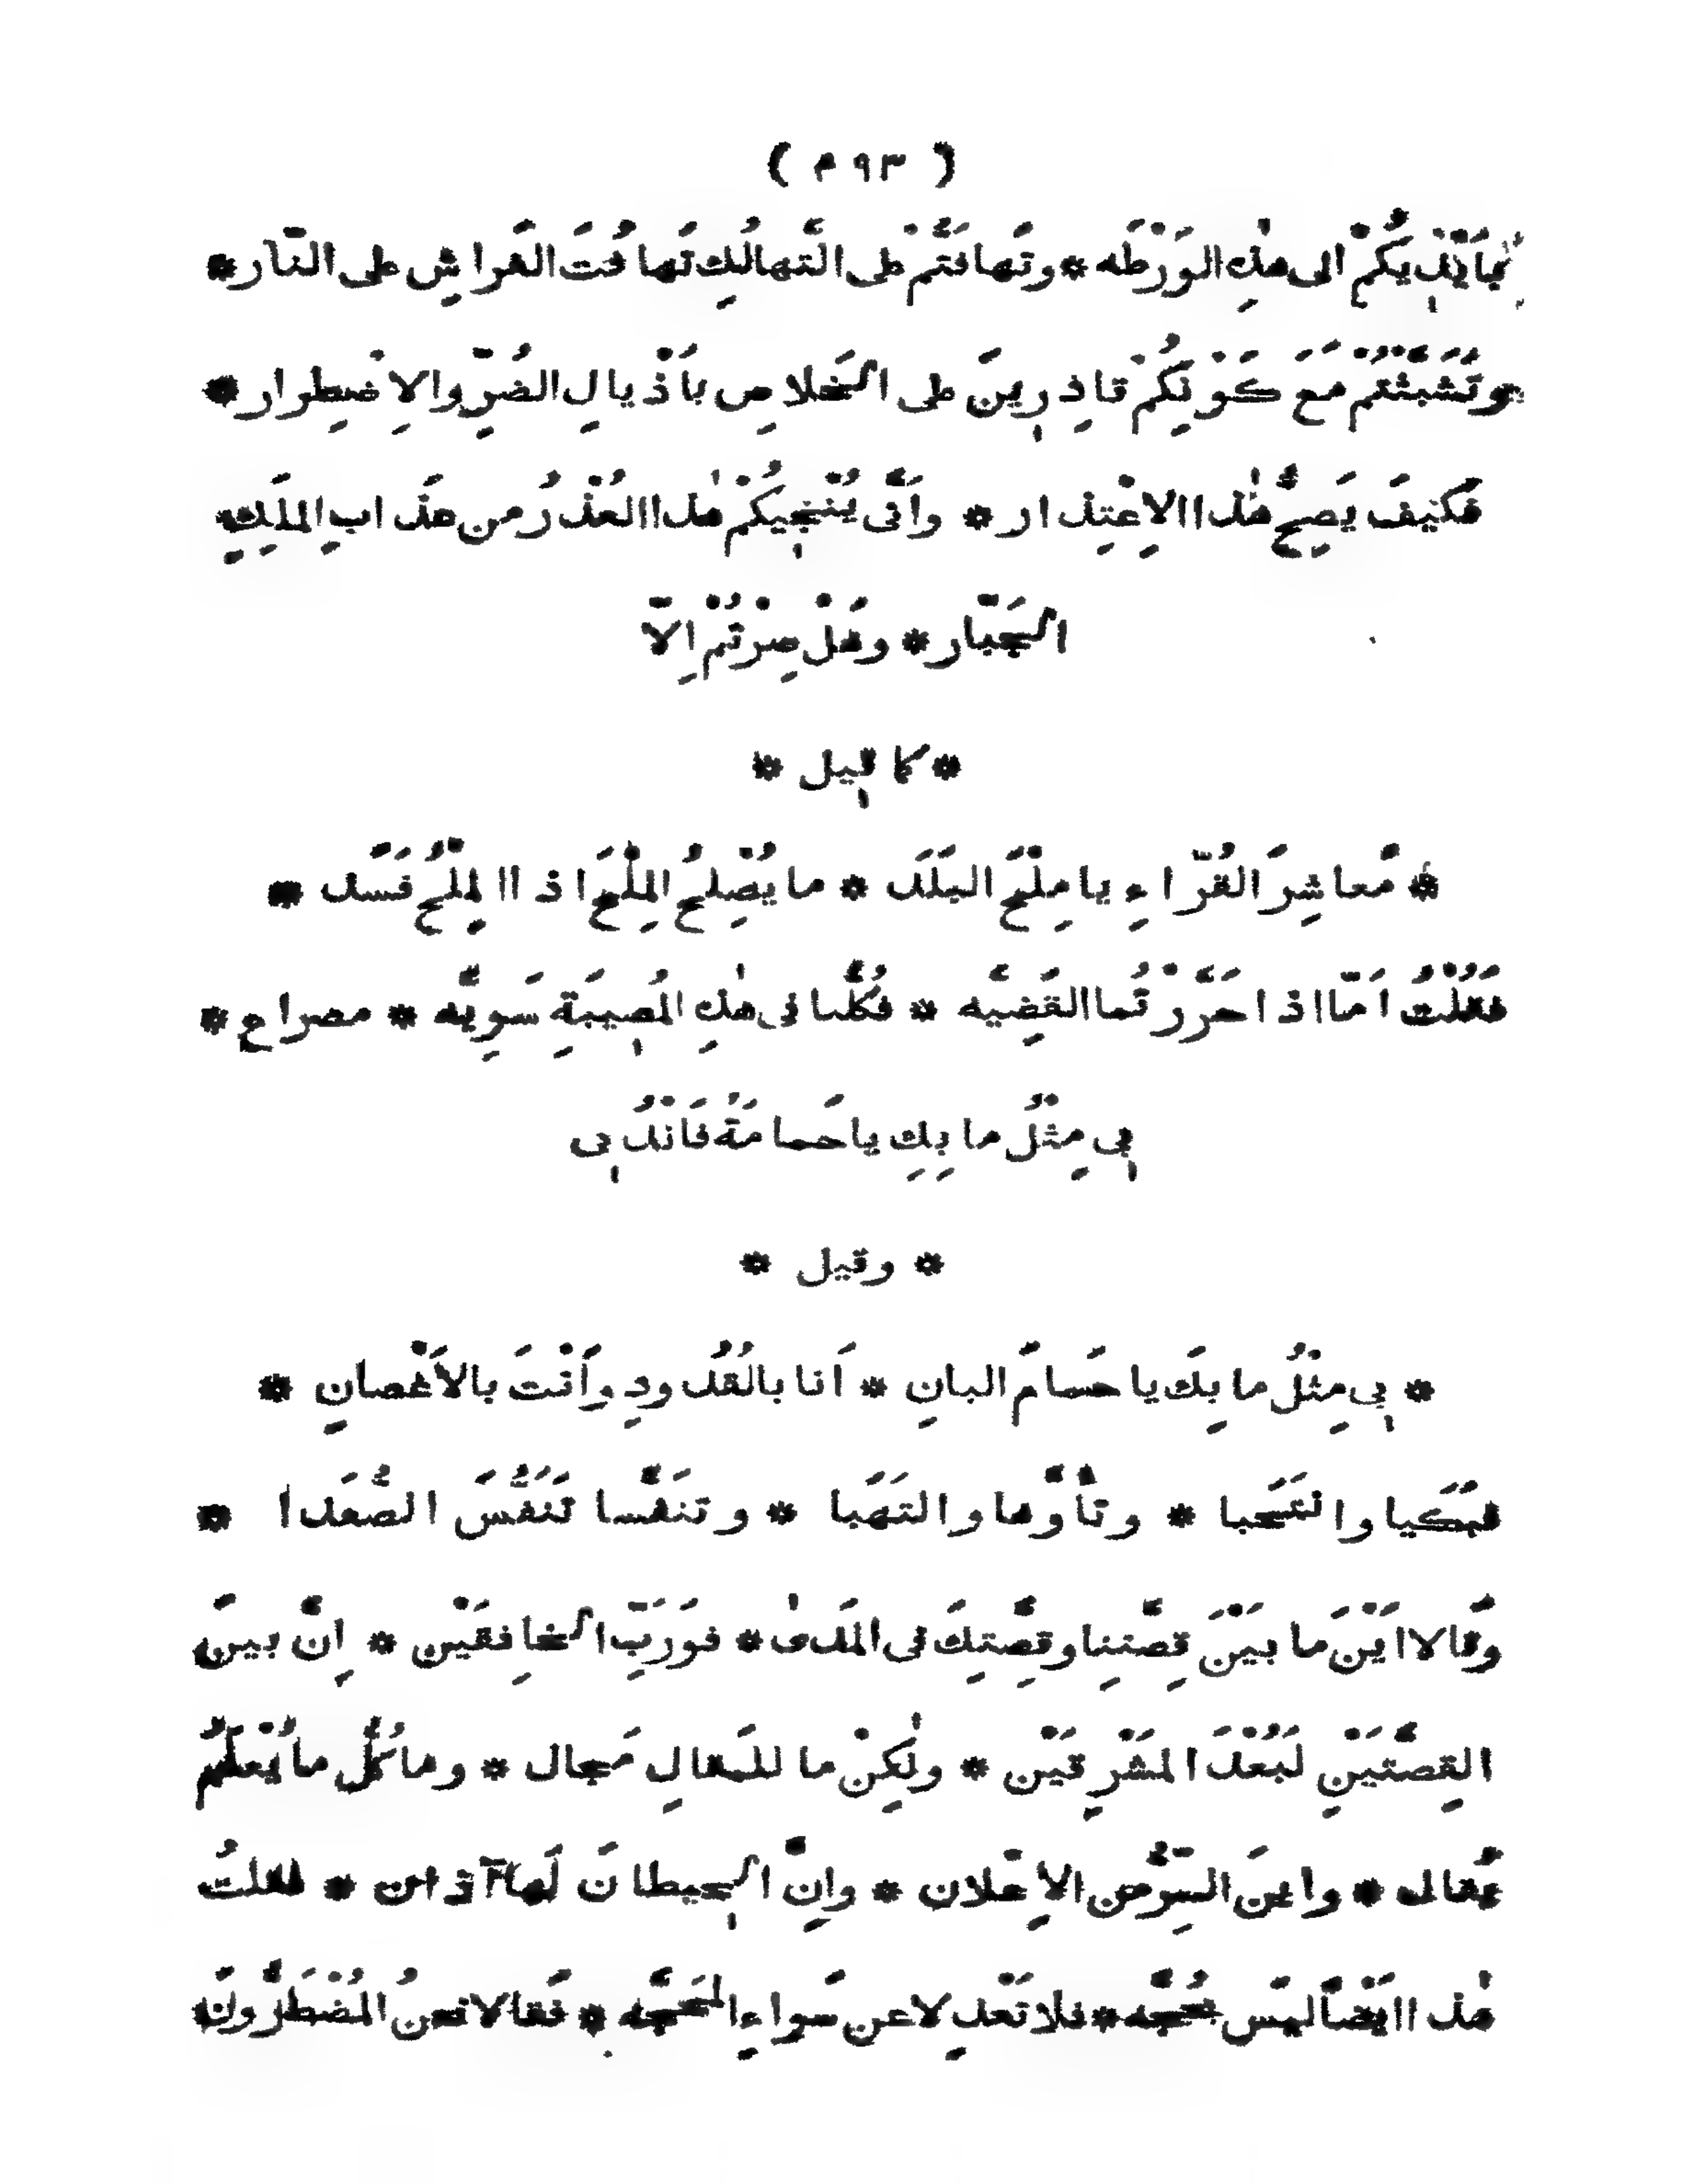 ( ٢٩٣ )
بِاَيْدِيكُمْ الى هٰذِهِ الوَرْطَه * وتَهافَتُّم على التَّهالُكِ تَهافُتَ الفَراشِ على النّار *
وتَشَبَّثْتُمْ مَعَ كَوْنِكُمْ قاذِرِينَ على الخَلاصِ بأَذْيالِ الضُرِّ والاِضْطِرار *
فكَيفَ يَصِحُّ هٰذا الاِعْتِذار * وأَنّى يُنْجِيكُمْ هٰذا العُذْرُ من عَذابِ المَلِكِ
الجَبّار * وهَلْ صِرْتُمْ اِلّا
* كما قيل *
* مَعاشِرَ القُرّاءِ يا مِلْحَ البَلَد * ما يُصْلِحُ المِلْحَ اذا المِلْحُ فَسَد *
فقُلْتُ اَمّا اذا حَرَّرْتُما القَضِيَّه * فكُلُّنا في هٰذِهِ المُصِيبَةِ سَوِيَّه * مصراع *
بِي مِثْلُ ما بِكِ يا حَمامَةُ فَانْدُبِي
* وقيل *
* بِي مِثْلُ ما بِكَ يا حَمامَ البانِ * اَنا بالقُدُودِ وأَنْتَ بالاَغْصانِ *
فبَكَيا وانتَحَبا * وتأَوَّها والتَهَبا * وتنَفَّسا تَنَفُّسَ الصُّعَدا *
وقَالا اَيْنَ ما بَيْنَ قِصَّتِنا وقِصَّتِكَ في المَدىٰ * فوَرَبِّ الخافِقَيْن * اِنَّ بينَ
القِصَّتَيْنِ لَبُعْدَ المَشْرِقَيْن * ولٰكِنْ ما للمَقالِ مَجال * وما كُلُّ ما يُعْلَمُ
يُقال * واين السِّرُّ من الاِعْلان * واِنَّ الحِيطانَ لَها آذان * فقلتُ
هٰذا ايْضًا ليَس بحُجَّه * فلا تَعْدِلا عن سَواءِ المَحَجَّه * فقَالا نحنُ المُضْطَرُّونَ